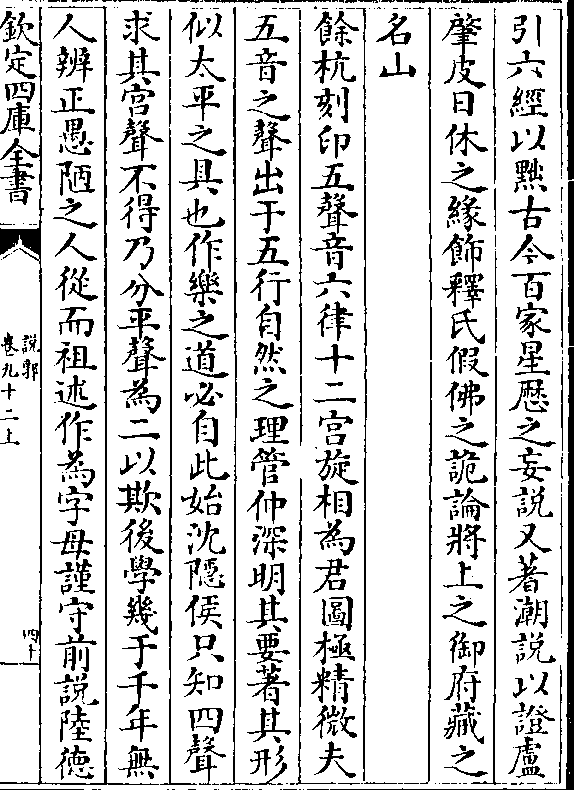 引六經以黜古今百家星厯之妄説又著潮説以證盧
肇皮日休之緣飾釋氏假佛之詭論將上之御府藏之
名山
餘杭刻印五聲音六律十二宫旋相為君圖極精微夫
五音之聲出于五行自然之理管仲深明其要著其形
似太平之具也作樂之道必自此始沈隱侯只知四聲
求其宫聲不得乃分平聲為二以欺後學幾于千年無
人辨正愚陋之人從而祖述作為字母謹守前説陸徳
欽定四庫全書
説郛
卷九十二上
四十